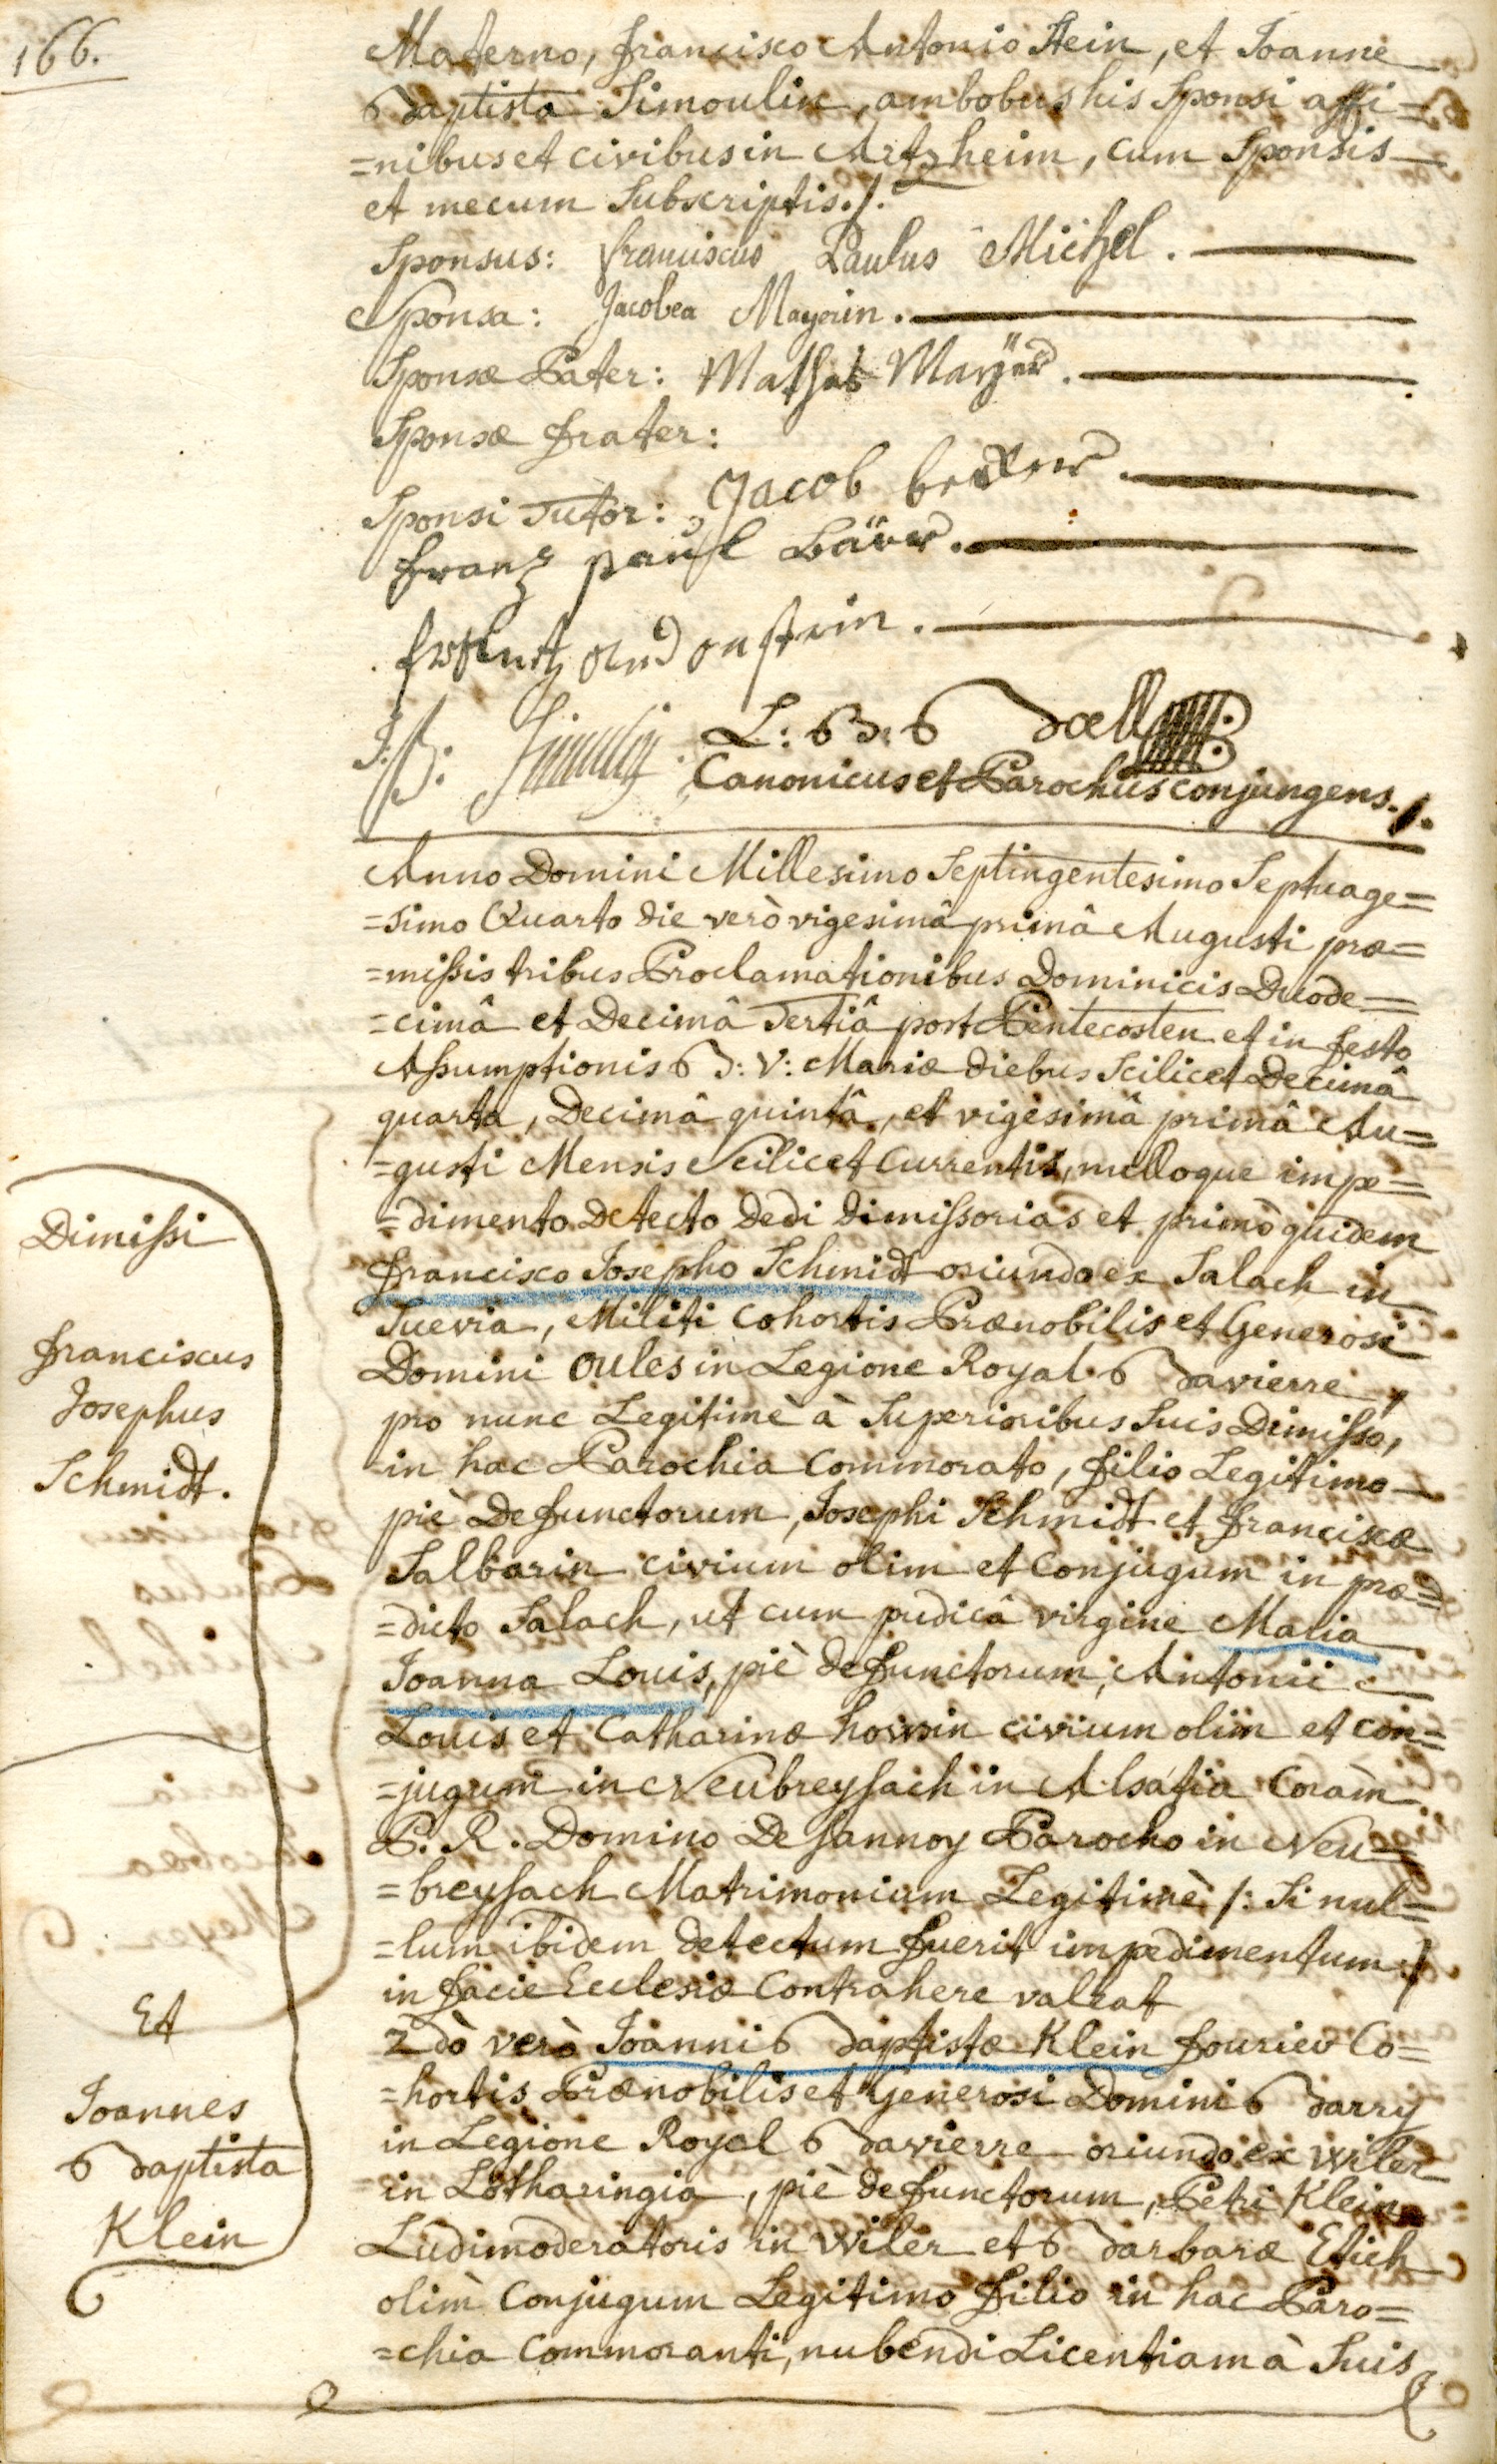 166.
Materno, Francisco Antonio Stein, et Joanne
Baptista Simoulin, ambobus his Sponsi affi=
=nibus et civibus in Artzheim, cum Sponsis
et mecum Subscriptis./.
Sponsus: franciscus Paulus Michel.
Sponsa: Jacobea Mayerin.
Sponsæ Pater: Mathas Mayer.
Sponsæ frater:
Sponsi Tutor: Jacob
franz paul Bäur.
J: B: Simulin L: B: Boell
Canonicus et Parochus conjungens./.
Anno Domini Millesimo Septingentesimo Septuage=
=simo Quarto die verò vigesimâ primâ Augusti præ=
=missis tribus Proclamationibus Dominicis Duode=
=cimâ et Decimâ Tertiâ post Pentecosten et in festo
Assumptionis B: V: Mariæ diebus Scilicet Decimâ
quarta, Decimâ quintâ, et vigesimâ primâ Au=
=gusti Mensis Scilicet Currentis, nulloque impe=
=dimento Detecto Dedi Dimissorias et primò quidem
Francisco Josepho Schmidt oriundo ex Salach in
Suevia, Militi Cohortis Prænobilis et Generosi
Domini Oules in Legione Royal Bavierre,
pro nunc Legitimè à Superioribus Suis Dimisso,
in hac Parochia Commorato, filio Legitimo
piè Defunctorum, Josephi Schmidt et Franciscæ
Salbarin civium olim et Conjugum in præ=
=dicto Salach, ut cum pudicâ virgine Maria
Joanna Louis, piè defunctorum, Antonii
Louis et Catharinæ civium olim et con=
=jugum in Neubreysach in Alsatia Coràm
P. R. Domino De Lannoy Parocho in Neu=
=breysach Matrimonium Legitimè /: Si nul=
=lum ibidem detectum fuerit impedimentum :/
in facie Ecclesiæ Contrahere valeat
2dò verò Joanni Baptistæ Klein fourier Co=
=hortis Prænobilis et Generosi Domini Barry
in Legione Royal Bavierre oriundo ex Wiler
in Lotharingia, piè defunctorum, Petri Klein
Ludimoderatoris in Wiler et Barbaræ Etich
olim Conjugum Legitimo filio in hac Paro=
=chia Commoranti, nubendi Licentiam à Suis
Dimissi
Franciscus
Josephus
Schmidt.
Et
Joannes
Baptista
Klein